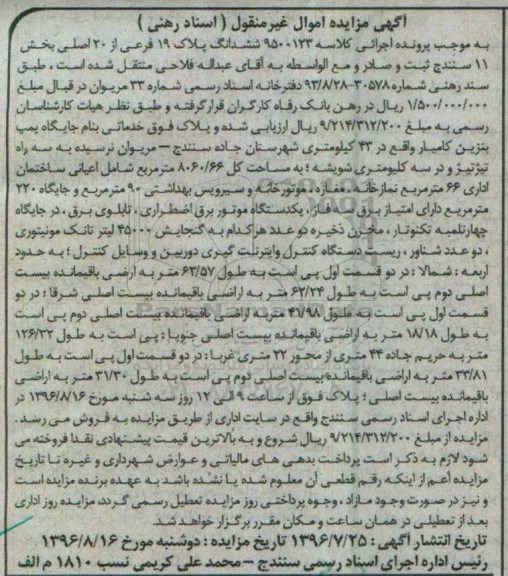 آگهی مزایده اموال غیرمنقول ( اسناد رهنی )
به موجب پرونده اجرائی کلاسه ۹۵۰۰۱۲۳ ششدانگ پلاک ۱۹ فرعی از ۲۰ اصلی بخش
۱۱ سنندج ثبت و صادر و مع الواسطه به آقای عبداله فلاحی منتقل شده است ، طبق
سند رهنی شماره ۳۰۵۷۸-۹۳/۸/۲۸ دفترخانه اسناد رسمی شماره ۳۳ مریوان در قبال مبلغ
۱/۵۰۰/۰۰۰/۰۰۰ ریال در رهن بانک رفاه کارگران قرارگرفته و طبق نظر هیات کارشناسان
رسمی به مبلغ ۹/۲۱۴/۳۱۲/۲۰۰ ریال ارزیابی شده و پلاک فوق خدماتی بنام جایگاه پمپ
بنزین کامیار واقع در ۴۳ کیلومتری شهرستان جاده سنندج – مریوان نرسیده به سه راه
تیژتیژ و در سه کلیومتری شویشه ؛ به مساحت کل ۸۰۶۰/۶۶ مترمربع شامل اعیانی ساختمان
اداری ۶۶ مترمربع نمازخانه ، مغازه ، موتورخانه و سیرویس بهداشتی ۹۰ مترمربع و جایگاه ۲۲۰
مترمربع دارای امتیاز برق سه فاز ، یکدستگاه موتور برق اضطراری ، تابلوی برق ، در جایگاه
چهارتلمبه تکنوتاز ، مخزن ذخیره دو عدد هرکدام به گنجایش ۴۵۰۰۰ لیتر تانک مونیتوری
، دو عدد شناور ، ریست دستگاه کنترل واینرنت گیری دوربین و وسایل کنترل ؛ به حدود
اربعه : شمالا : در دو قسمت اول پی است به طول ۶۳/۵۷ متر به ارضی باقیمانده بیست
اصلی دوم پی است به طول ۶۲/۲۴ متر به اراضی باقیمانده بیست اصلی شرقا : در دو
قسمت اول پی است به طول ۴۱/۹۸ متربه اراضی باقیمانده بیست اصلی دوم پی است
به طول ۱۸/۱۸ متر به اراضی باقیمانده بیست اصلی جنوبا : پی است به طول ۱۲۶/۳۲
متر به حریم جاده ۴۴ متری از محور ۲۲ متری غربا : در دو قسمت اول پی است به طول
۳۳/۸۱ متر به اراضی باقیمانده بیست اصلی دوم پی است به طول ۳۱/۳۰ متر به اراضی
باقیمانده بیست اصلی ؛ پلاک فوق از ساعت ۹ الی ۱۲ روز سه شنبه مورخ ۱۳۹۶/۸/۱۶ در
اداره اجرای اسناد رسمی سنندج واقع در سایت اداری از طریق مزایده به فروش می رسد .
مزایده از مبلغ ۹/۲۱۴/۳۱۲/۲۰۰ ریال شروع و به بالاترین قیمت پیشنهادی نقدا فروخته می
شود لازم به ذکر است پرداخت بدهی های مالیاتی و عوارض شهرداری و غیره تا تاریخ
مزایده اعم از اینکه رقم قطعی آن معلوم شده یا نشده باشد به عهده برنده مزایده است
و نیز در صورت وجود مازاد ، وجوه پرداختی روز مزایده تعطیل رسمی گردد، مزایده روز اداری
بعد از تعطیلی در همان ساعت و مکان مقرر برگزار خواهد شد.
تاریخ انتشار آگهی : ۱۳۹۶/۷/۲۵ تاریخ مزایده : دوشنبه مورخ ۱۳۹۶/۸/۱۶
رئیس اداره اجرای اسناد رسمی سنندج – محمد علی کریمی نسب ۱۸۱۰ م الف